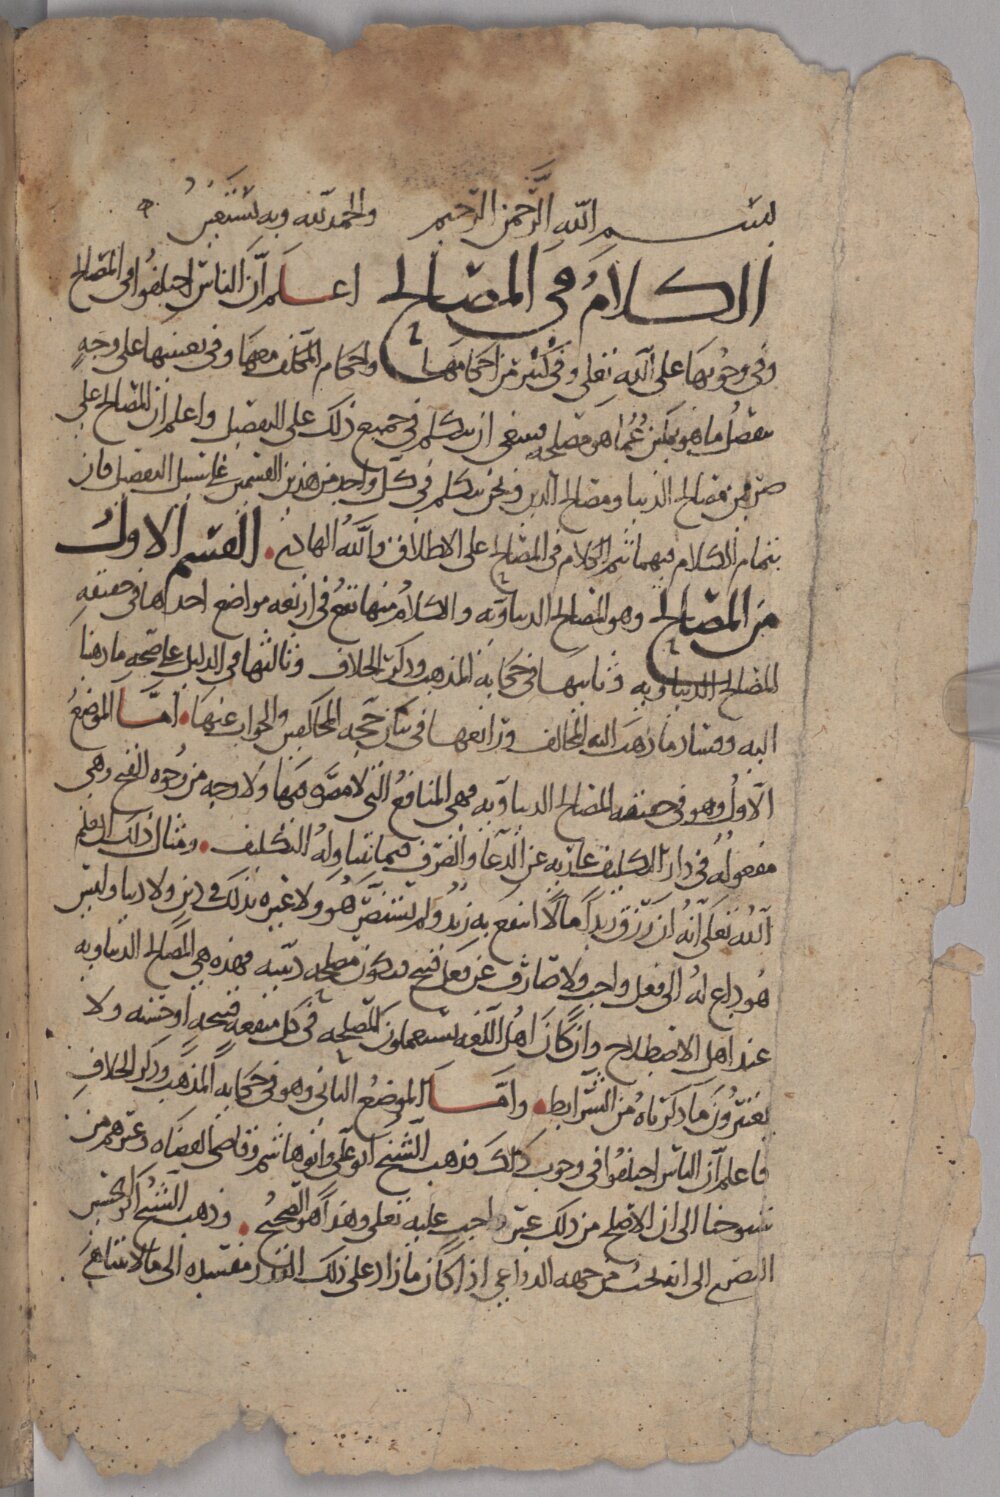 بسم الله الرحمن الرحيم والحمد لله وبه نستعين
الكلام في المصالح اعلم أن الناس اختلفوا في المصالح
وفي وجوبها على الله تعلى وفي كثير من احكامها واحكام المكلف معها وفي تعيينها على وجهٍ
يفصل ما هو مما هو مصلحه فينبغي ان نتكلم في جميع ذلك على التفصيل واعلم ان المصالح على
ضربين مصالح الدنيا ومصالح الدين ونحن نتكلم في كل واحد من هذين القسمين على سبيل التفصيل فان
بتمام الكلام فيهما تتم الكلام في المصالح على الاطلاق والله الهادي. القسم الاول
من المصالح وهو المصالح الدنياويه والكلام منها تقع في اربعه مواضع احدها في حقيقه
المصالح الدنياويه وثانيها في حكايه المذهب وذكر الخلاف وثالثها في الدليل على صحه ما ذهبنا
اليه وفساد ما ذهب اليه المخالف ورابعها في بيان حجه المخالفين والجواب عنها. أما الموضع
الاول وهو في حقيقه المصالح الدنياويه فهي المنافع التي لا مضره فيها ولا وجه من وجوه القبح وهي
مفعولة في دار التكليف عاريه عن الدعا والصرف فيما تناوله التكليف. ومثال ذلك ان يعلم
الله تعلى انه ان رزق زيداً مالاً انتفع به زيد ولم يستضر هو ولا غيره بذلك في دين ولا دنيا وليس
هو بداع له الى فعل واجب ولا صارف عن فعل قبيح فيكون مصلحه دينيه فهذه هي المصالح الدنياويه
عند اهل الاصطلاح وان كان اهل اللغه يستعملون المصلحه في كل منفعه قبيحه او حسنه ولا
يعتبرون ما ذكرناه من الشرايط. وأما الموضع الثاني وهو في حكايه المذهب وذكر الخلاف
فاعلم أن الناس اختلفوا في وجوب ذلك فذهب الشيخ ابو علي وابو هاشم وقاضي القضاه وغيرهم من
شيوخنا الى ان الاصلح من ذلك غير واجب عليه تعلى وهذا هو الصحيح. وذهب الشيخ ابو الحسين
البصري الى انه يجب من جهه الدواعي اذا كان ما زاد على ذلك القدر مفسده الى ما لا يتناهى